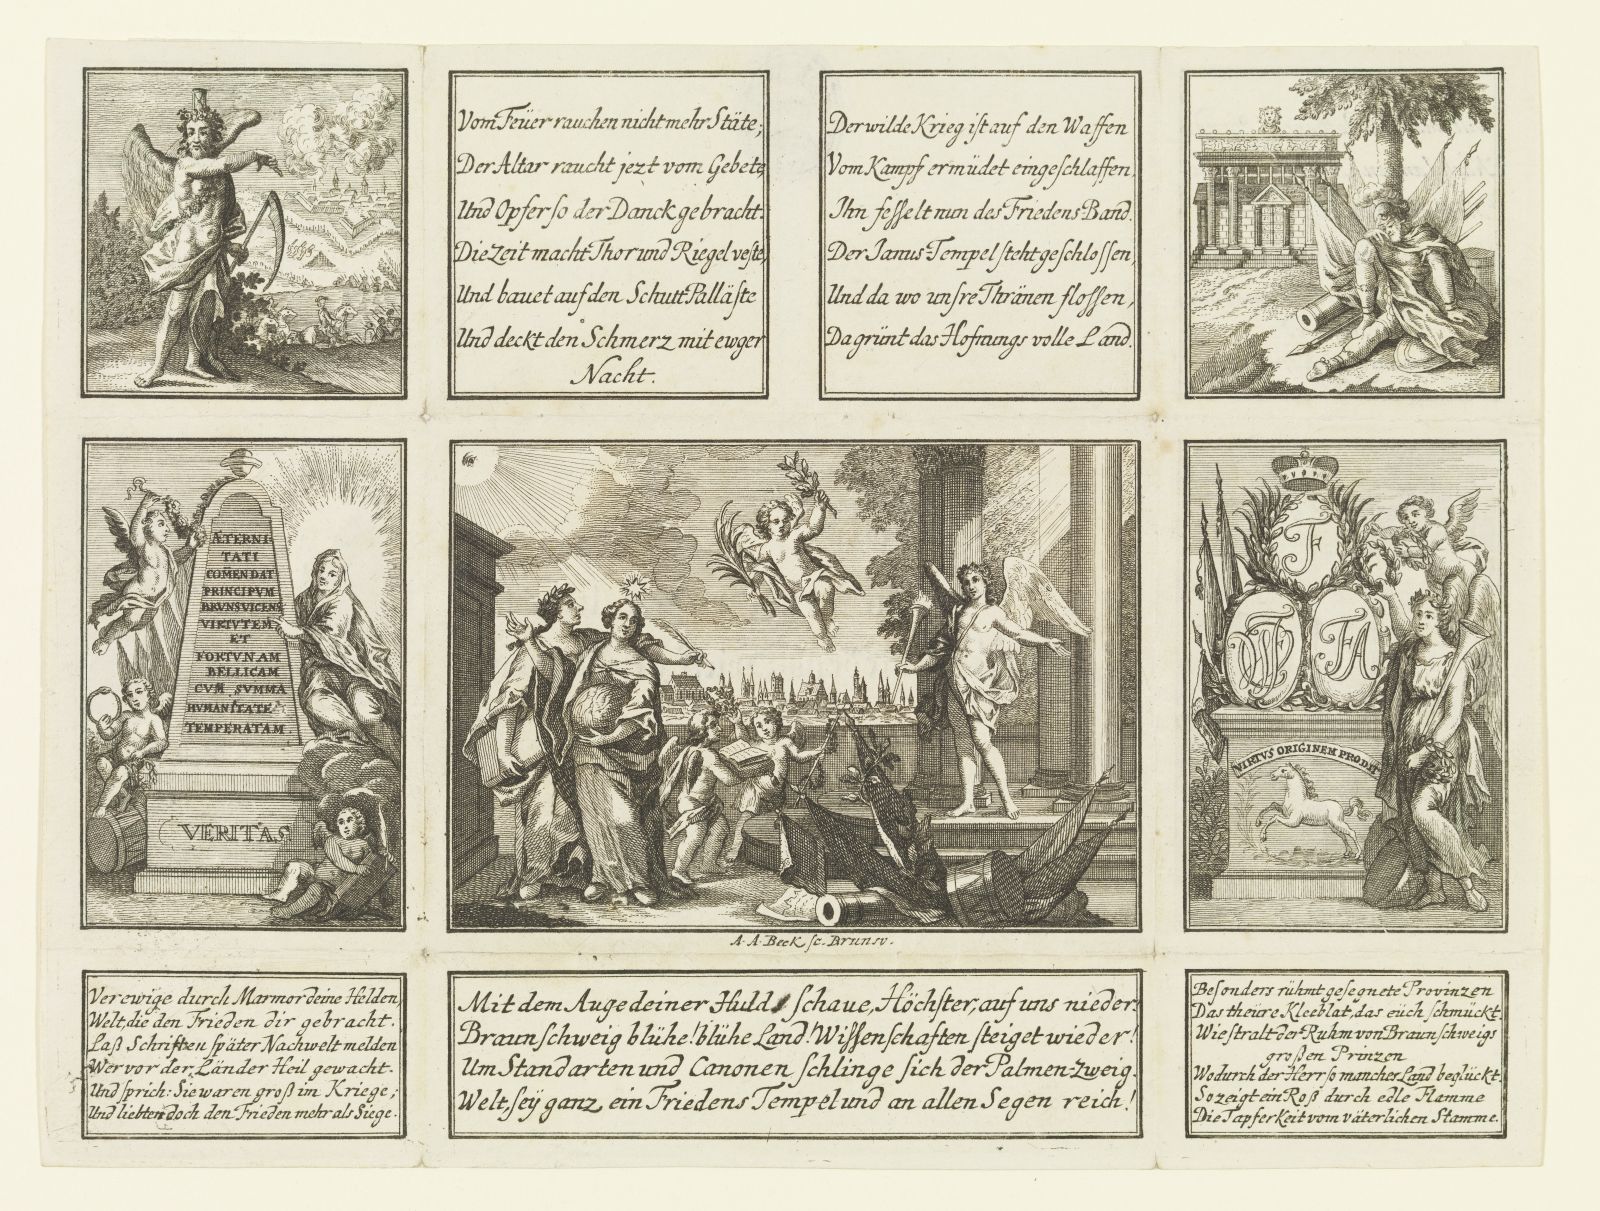 Vom Feüer rauchen nicht mehr Stäte;
Der Altar raucht jezt vom Gebete,
Und Opfer so der Danck gebracht.
Die Zeit macht Thor und Riegel veste,
Und bauet auf den Schutt Palläste
Und deckt den Schmerz mit ewger
Nacht.
Der wilde Krieg ist auf den Waffen
Vom Kampf ermüdet eingeschlaffen,
Ihn fesselt nun des Friedens-Band.
Der Janus-Tempel steht geschlossen,
Und da wo unsre Thränen flossen,
Da grünt das Hofnungs volle Land.
ÆTERNI-
TATI
COM̄ENDAT
PRINCIPVM
BRVNSVICENS
VIRTVTEM
ET
FORTVNAM
BELLICAM
CVM SVMMA
HVMANITATE
TEMPERATAM
VERITAS
F
FA
VIRTVS ORIGINEM PRODIT
A. A. Beck sc. Brunsv.
Verewige durch Marmor deine Helden,
Welt, die den Frieden dir gebracht.
Laß Schriften später Nachwelt melden
Wer vor der Länder Heil gewacht.
Und sprich: Sie waren groß im Kriege;
Und liebten doch den Frieden mehr als Siege.
Mit dem Auge deiner Huld schaue, Höchster, auf uns nieder:
Braunschweig blühe! blühe Land! Wissenschaften steiget wieder!
Um Standarten und Canonen schlinge sich der Palmen-zweig.
Welt, seÿ ganz ein Friedens Tempel und an allen Segen reich!
Besonders rühmt gesegnete Provinzen
Das theüre Kleeblat, das eüch schmückt.
Wie stralt der Ruhm von Braunschweigs
großen Prinzen
Wodurch der Herr so manches Land beglückt.
So zeigt ein Roß durch edle Flamme
Die Tapferkeit vom väterlichen Stamme.